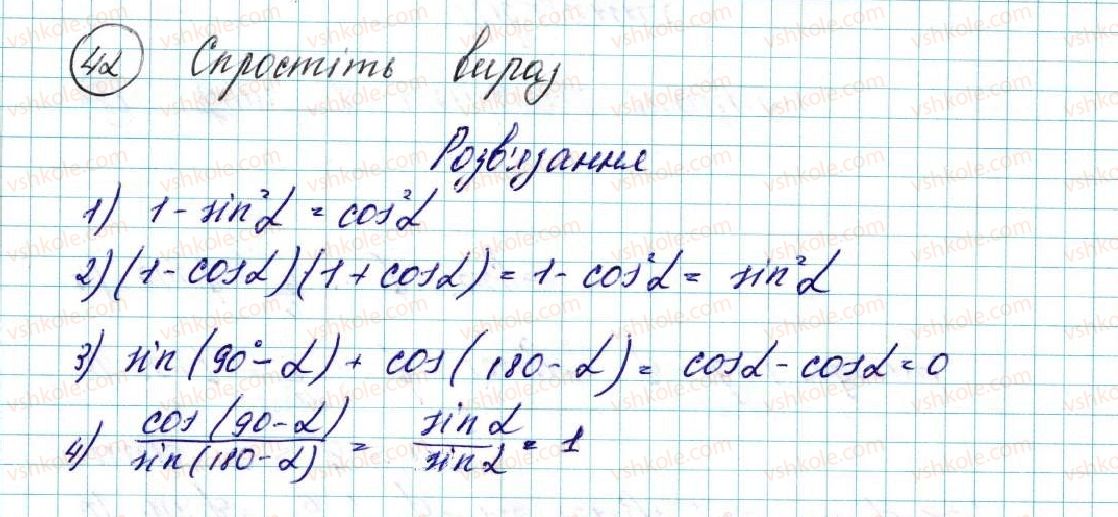 42 Спростіть вираз
Розв'язання
1) 1 - sin²α = cos²α
2) (1 - cosα)(1 + cosα) = 1 - cos²α = sin²α
3) sin(90° - α) + cos(180 - α) = cosα - cosα = 0
4) cos(90 - α) / sin(180 - α) = sinα / sinα = 1